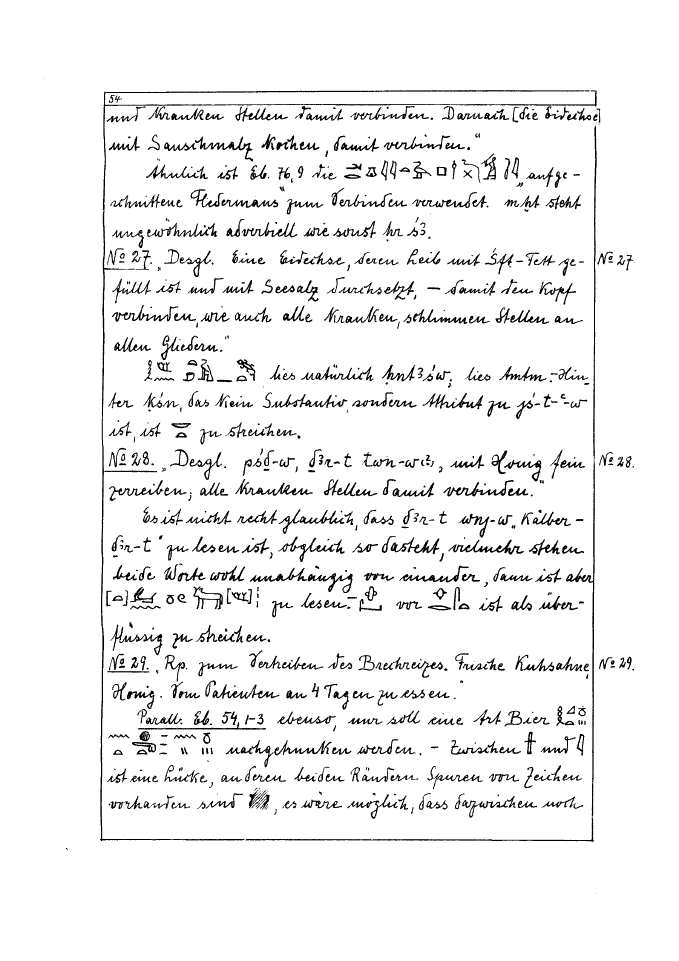 54
und kranken Stellen damit verbinden. Darnach [die Eidechse]
mit Sauschmalz kochen, damit verbinden."
Ähnlich ist Eb. 76,9 die "aufge-
schnittene Fledermaus" zum Verbinden verwendet. mḫt steht
ungewöhnlich adverbiell wie sonst ḥr ś3.
No 27. „Desgl. Eine Eidechse, deren Leib mit Śft-Fett ge- No 27
füllt ist und mit Seesalz durchsetzt, – damit den Kopf
verbinden, wie auch alle kranken, schlimmen Stellen an
allen Gliedern."
lies natürlich ; lies Amtm.: Hin-
ter ḳśn, das kein Substantiv, sondern Attribut zu
ist, ist zu streichen.
No 28. „Desgl. , mit Honig fein No 28.
zerreiben; alle kranken Stellen damit verbinden."
Es ist nicht recht glaublich, dass „Kälber-
" zu lesen ist, obgleich so dasteht, vielmehr stehen
beide Worte wohl unabhängig von einander, dann ist aber
zu lesen. – vor ist als über-
flüssig zu streichen.
No 29. „Rp. zum Vertreiben des Brechreizes. Frische Kuhsahne, No 29.
Honig. Vom Patienten an 4 Tagen zu essen."
Parall: Eb. 54, 1-3 ebenso, nur soll eine Art Bier
nachgetrunken werden. – Zwischen und
ist eine Lücke, an deren beiden Rändern Spuren von Zeichen
vorhanden sind , es wäre möglich, dass dazwischen noch